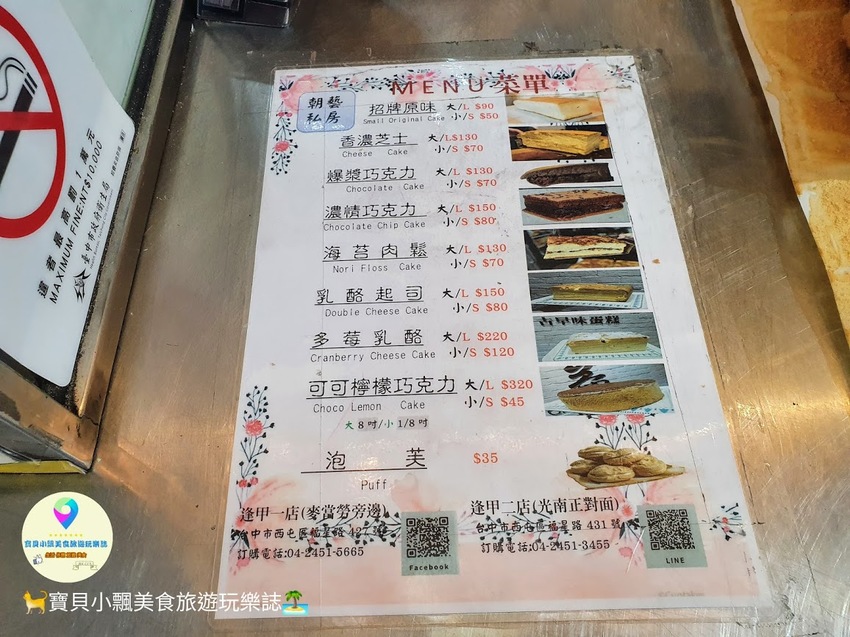 違者最高罰1萬元
MAXIMUM FINE:NT$10,000
臺中市政府衛生局
MENU菜單
朝藝
私房
招牌原味 大/L $90
Small Original Cake 小/S $50
香濃芝士 大/L $130
Cheese Cake 小/S $70
爆漿巧克力 大/L $130
Chocolate Cake 小/S $70
濃情巧克力 大/L $150
Chocolate Chip Cake 小/S $80
海苔肉鬆 大/L $130
Nori Floss Cake 小/S $70
乳酪起司 大/L $150
Double Cheese Cake 小/S $80
古早味蛋糕
多莓乳酪 大/L $220
Cranberry Cheese Cake 小/S $120
可可檸檬巧克力 大/L $320
Choco Lemon Cake 小/S $45
大 8 吋/小 1/8 吋
泡芙 $35
Puff
逢甲一店(麥當勞旁邊)
台中市西屯區福星路 427 號
訂購電話:04-2451-5665
Facebook
逢甲二店(光南正對面)
台中市西屯區福星路 431 號
訂購電話:04-2451-3455
LINE
寶貝小飄美食旅遊玩樂誌
寶貝小飄美食旅遊玩樂誌